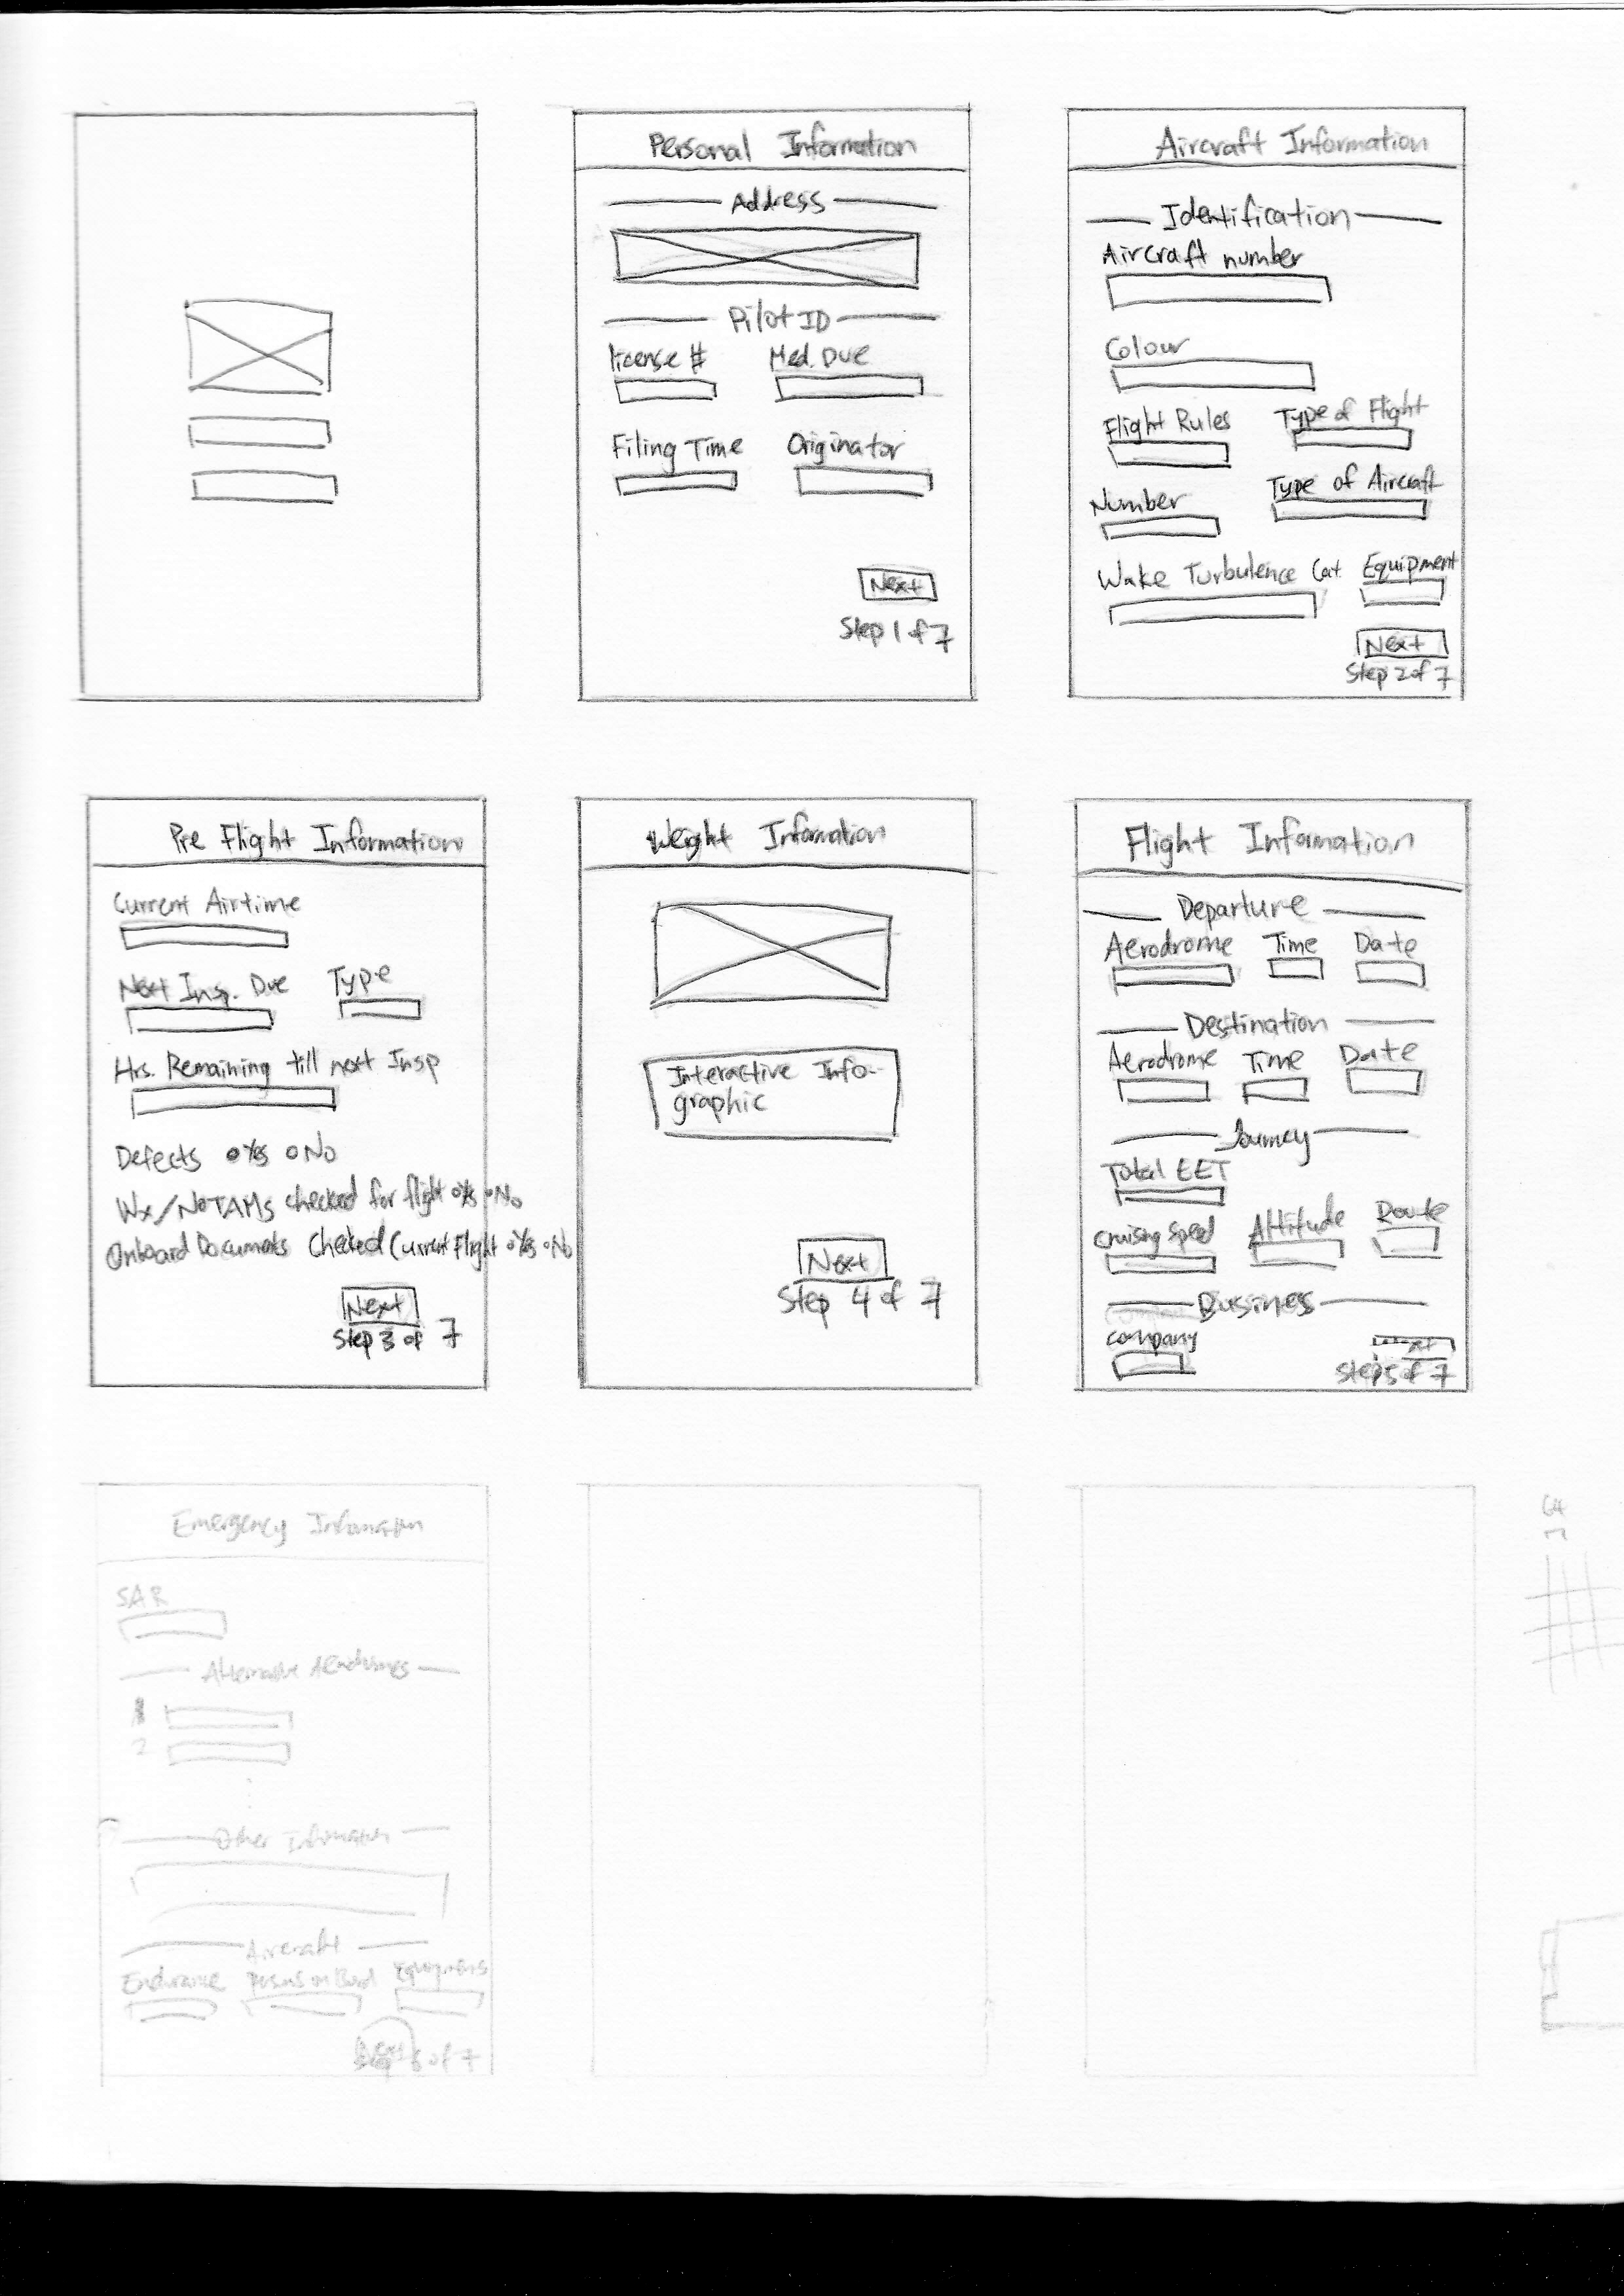 Personal Information
Address
Pilot ID
license # Med. Due
Filing Time Originator
Next
Step 1 of 7
Aircraft Information
Identification
Aircraft number
Colour
Flight Rules Type of Flight
Number Type of Aircraft
Wake Turbulence Cat. Equipment
Next
Step 2 of 7
Pre Flight Information
Current Airtime
Next Insp. Due Type
Hrs. Remaining till next Insp
Defects Yes No
Wx/NOTAMs checked for flight Yes No
Onboard Documents Checked Current Flight Yes No
Next
Step 3 of 7
Weight Information
Interactive Info-
graphic
Next
Step 4 of 7
Flight Infomation
Departure
Aerodrome Time Date
Destination
Aerodrome Time Date
Journey
Total EET
Cruising Speed Altitude Route
Business
company
Step 5 of 7
Emergency Infomation
SAR
Alternative Aerodromes
1
2
Other Information
Aircraft
Endurance Persons on Board
Step 6 of 7